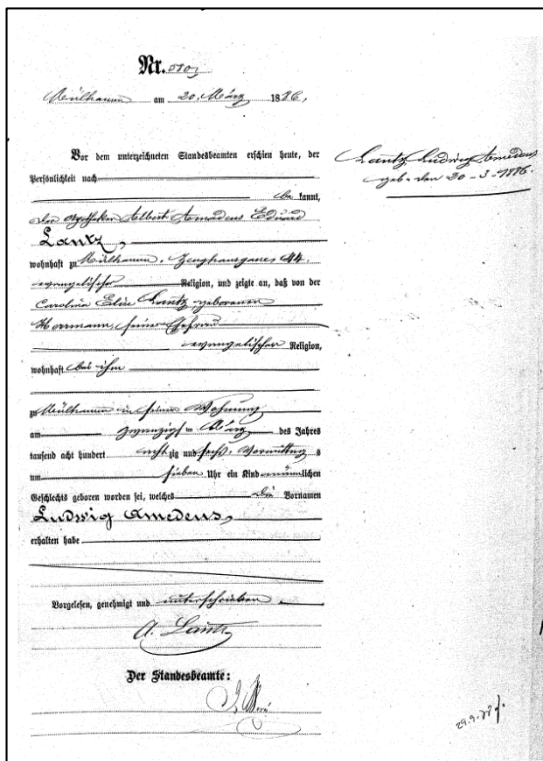 Nr.
Mülhausen am 20. März 1886.
Vor dem unterzeichneten Standesbeamten erschien heute, der
Persönlichkeit nach
be kannt,
der Apotheker Albert Amadeus Eduard
Lantz,
wohnhaft zu Mülhausen, Zeughausgasse 44,
evangelischer Religion, und zeigte an, daß von der
Carolina Elise Lantz geborenen
Herrmann, seiner Ehefrau
evangelischer Religion,
wohnhaft bei ihm
zu Mülhausen in seiner Wohnung
am zwanzigsten März des Jahres
tausend acht hundert acht zig und sechs, Vormittag s
um sieben Uhr ein Kind männlichen
Geschlechts geboren worden sei, welches die Vornamen
Ludwig Amedeus,
erhalten habe
Vorgelesen, genehmigt und unterschrieben
A. Lantz
Der Standesbeamte:
Lantz Ludwig Amedeus
geb. den 20-3-1886.